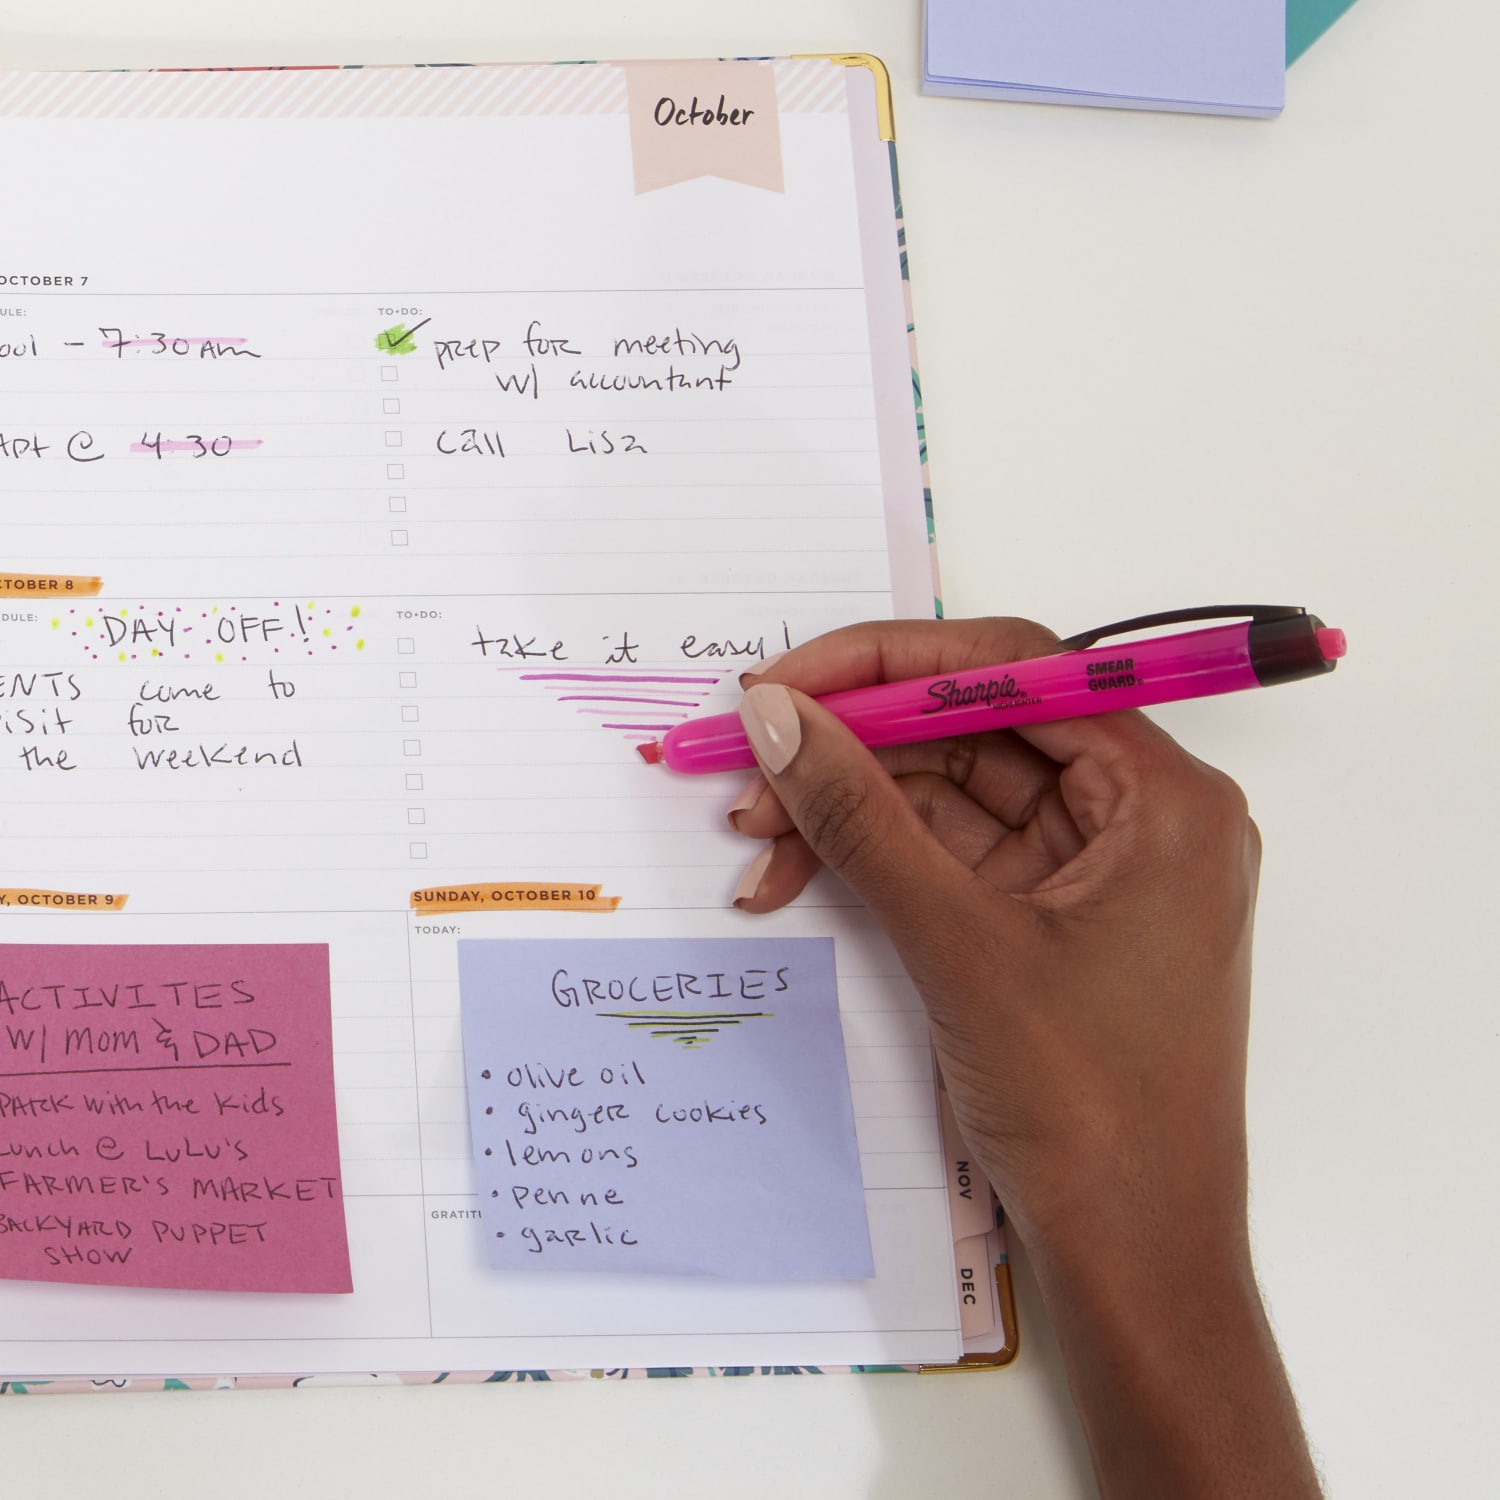 October
OCTOBER 7
ULE:
TO•DO:
ool - 7:30 Am
prep for meeting
w/ accountant
Apt @ 4:30
Call Lisa
CTOBER 8
DULE:
DAY OFF!
TO•DO:
take it easy!
ENTS come to
visit for
the weekend
Sharpie®
HIGHLIGHTER
SMEAR
GUARD®
Y, OCTOBER 9
SUNDAY, OCTOBER 10
TODAY:
ACTIVITES
W/ Mom & DAD
PARK with the kids
Lunch @ LuLu's
FARMER'S MARKET
BACKYARD PUPPET
SHOW
GROCERIES
• olive oil
• ginger cookies
• lemons
• penne
• garlic
GRATITU
NOV
DEC